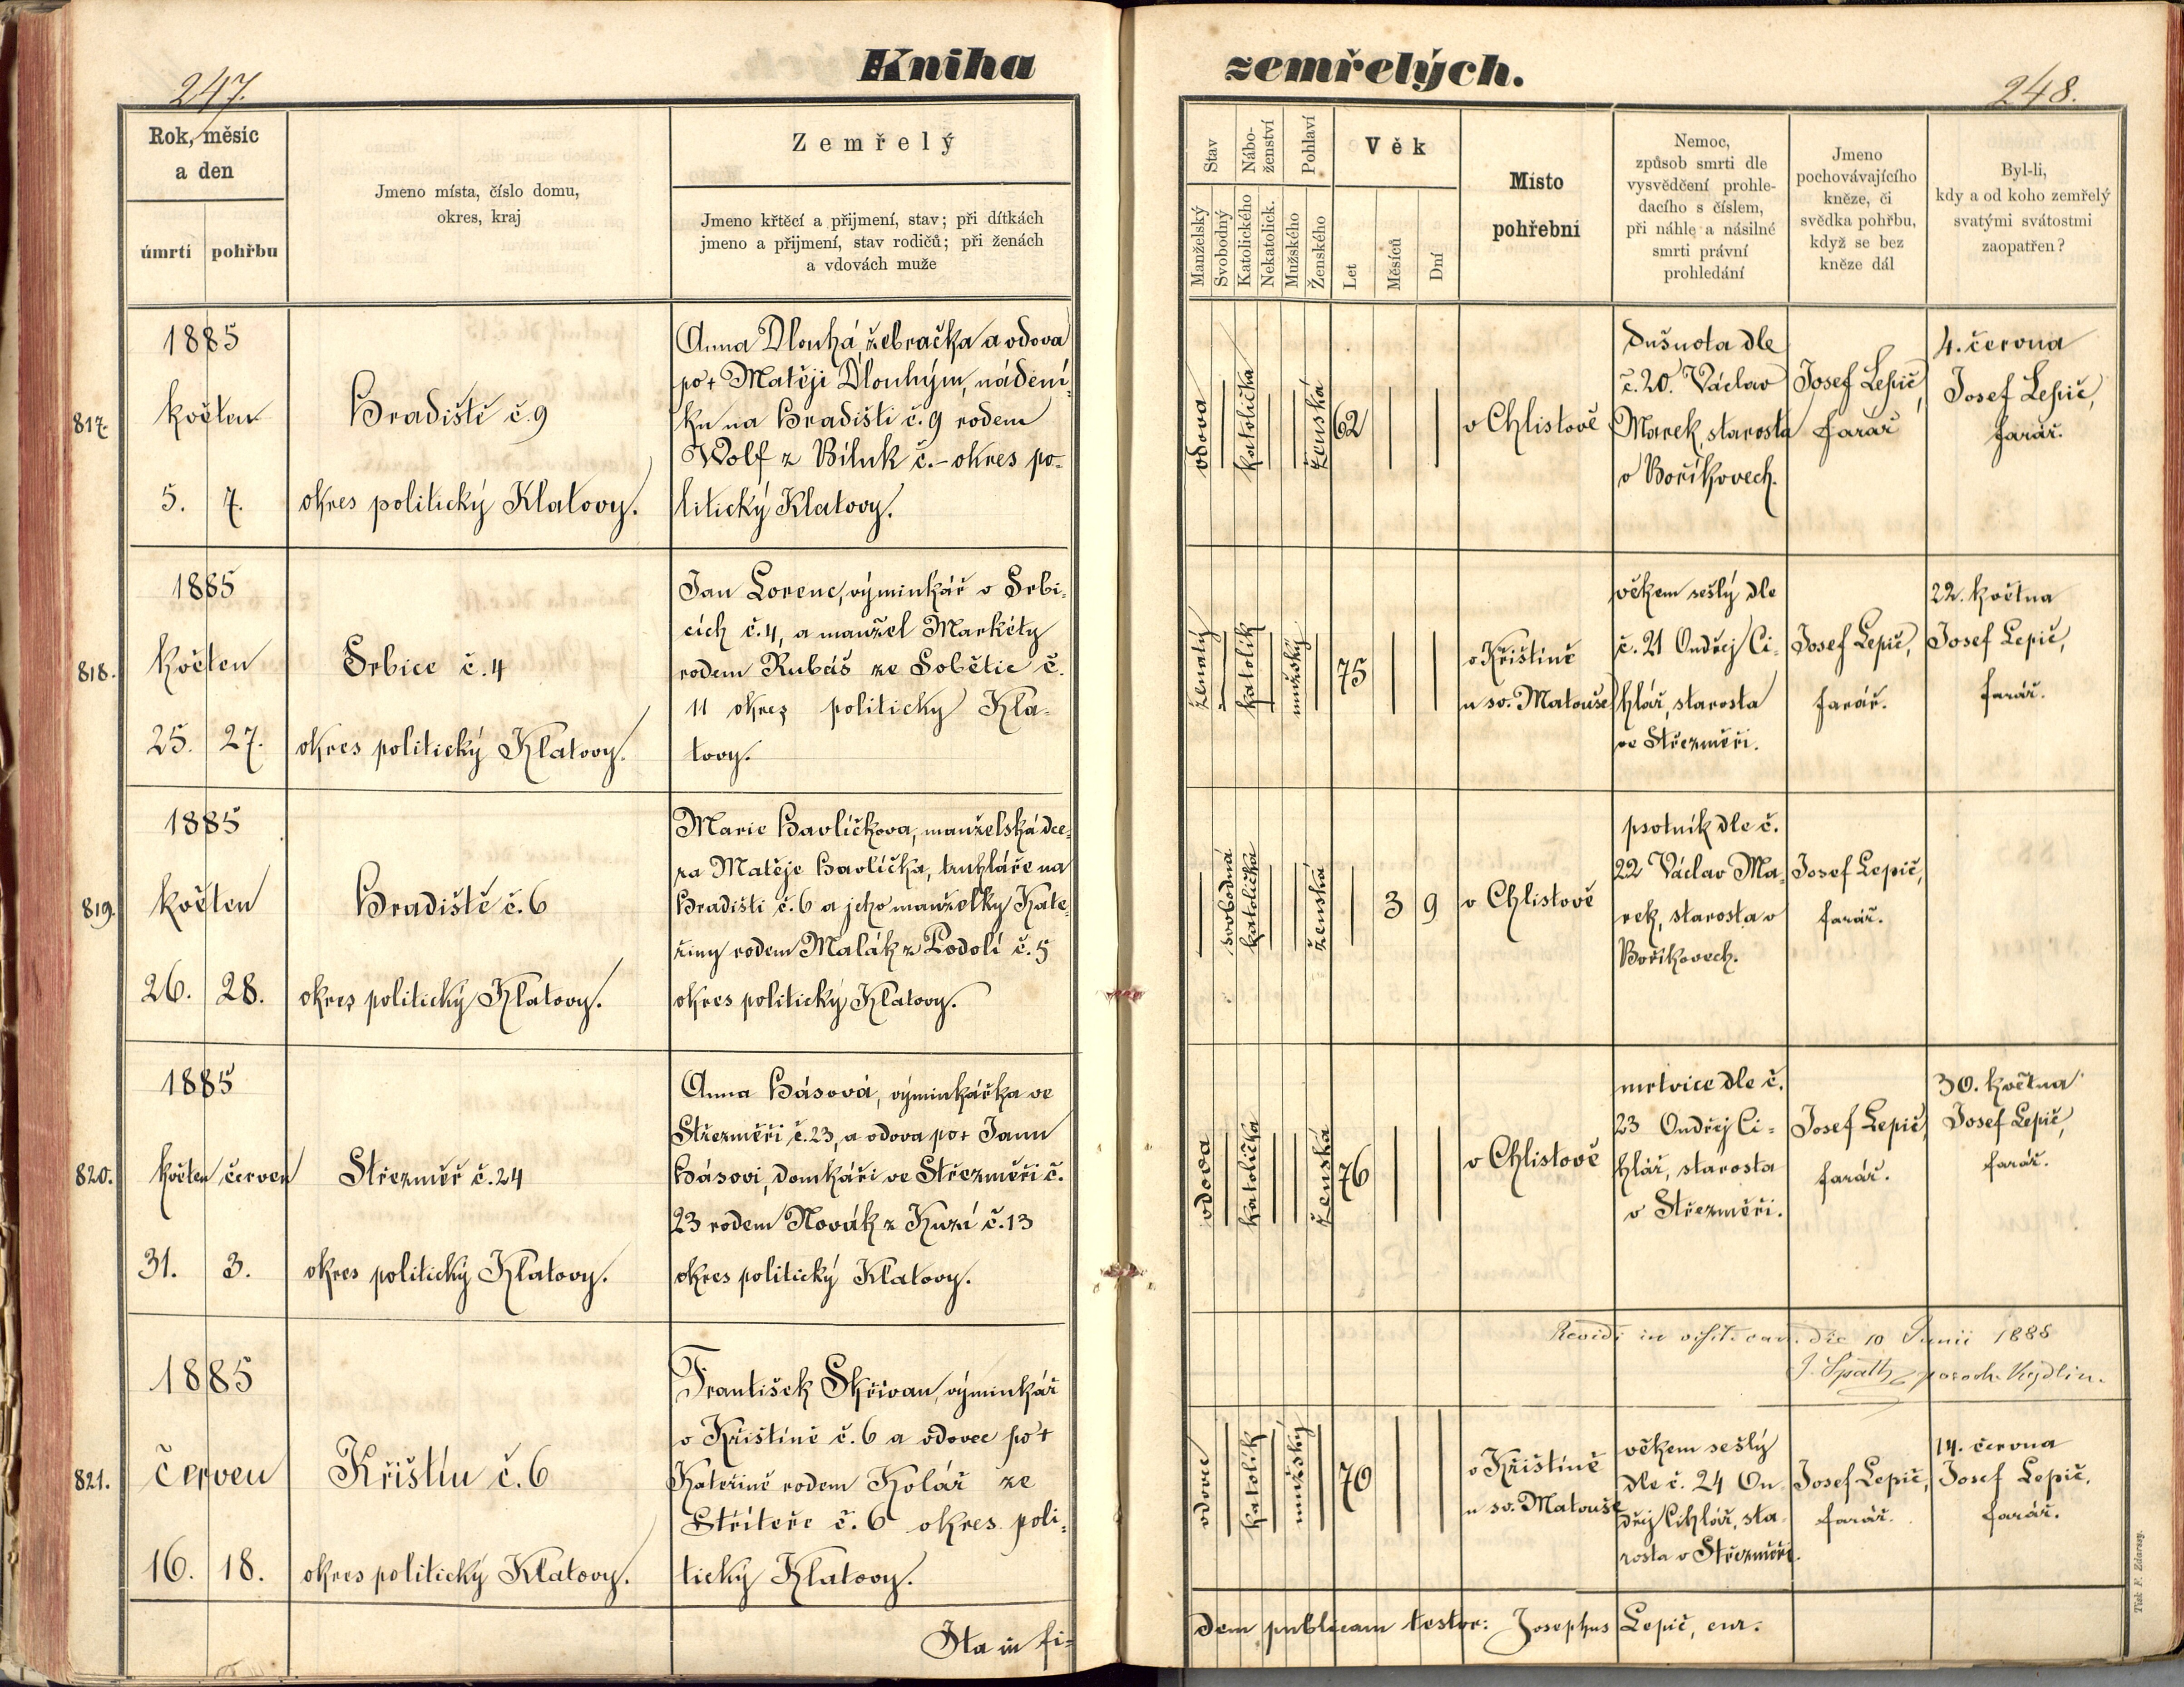 Kniha
zemřelých.
247.
248.
Rok, měsíc
a den
úmrtí
pohřbu
Jmeno místa, číslo domu,
okres, kraj
Zemřelý
Jmeno křtěcí a přijmení, stav; při dítkách
jmeno a přijmení, stav rodičů; při ženách
a vdovách muže
Stav
Manželský
Svobodný
Nábo-
ženství
Katolického
Nekatolick.
Pohlaví
Mužského
Ženského
Věk
Let
Měsíců
Dní
Místo
pohřební
Nemoc,
způsob smrti dle
vysvědčení prohle-
dacího s číslem,
při náhlé a násilné
smrti právní
prohledání
Jmeno
pochovávajícího
kněze, či
svědka pohřbu,
když se bez
kněze dál
Byl-li,
kdy a od koho zemřelý
svatými svátostmi
zaopatřen?
817.
1885
květen
5.
7.
Hradiště č. 9
okres politický Klatovy.
Anna Dlouhá, žebračka a vdova
po † Matěji Dlouhým, nádení-
ku na Hradišti č. 9 rodem
Wolf z Běluk č. – okres po-
litický Klatovy.
vdova
katolička
ženská
62
v Chlistově
Dušnota dle
č. 20. Václav
Marek, starosta
v Boříkovech.
Josef Lepič,
farář
4. června
Josef Lepič,
farář.
818.
1885
květen
25.
27.
Srbice č. 4
okres politický Klatovy.
Jan Lorenc, výminkář v Srbi-
cích č. 4, a manžel Markéty
rodem Rubáš ze Sobětic č.
11 okres politický Kla-
tovy.
ženatý
katolík
mužský
75
v Křištíně
u sv. Matouše
věkem sešlý dle
č. 21 Ondřej Ci-
hlář, starosta
ve Střezměři.
Josef Lepič,
farář.
22. května
Josef Lepič,
farář.
819.
1885
květen
26.
28.
Hradiště č. 6
okres politický Klatovy.
Marie Havlíčkova, manželská dce-
ra Matěje Havlíčka, truhláře na
Hradišti č. 6 a jeho manželky Kate-
řiny rodem Malák z Podolí č. 5
okres politický Klatovy.
svobodná
katolička
ženská
3
9
v Chlistově
psotník dle č.
22 Václav Ma-
rek, starosta v
Boříkovech.
Josef Lepič,
farář.
820.
1885
květen
červen
31.
3.
Střezměř č. 24
okres politický Klatovy.
Anna Hásová, výminkářka ve
Střezměři č. 23, a vdova po † Janu
Hásovi, domkáři ve Střezměři č.
23 rodem Novák z Kuzí č. 13
okres politický Klatovy.
vdova
katolička
ženská
76
v Chlistově
mrtvice dle č.
23 Ondřej Ci-
hlář, starosta
v Střezměři.
Josef Lepič,
farář.
30. května
Josef Lepič,
farář.
Revidi in visit. can. die 10 Junii 1885
J. Späth paroch. Vejdlin.
821.
1885
červen
16.
18.
Křištín č. 6
okres politický Klatovy.
František Skřivan, výminkář
v Křištíně č. 6 a vdovec po †
Kateřině rodem Kolář ze
Stříteře č. 6 okres poli-
tický Klatovy.
vdovec
katolík
mužský
70
v Křištíně
u sv. Matouše
věkem sešlý
dle č. 24 On-
dřej Cihlář, sta-
rosta v Střezměři.
Josef Lepič,
farář.
14. června
Josef Lepič,
farář.
Ita in fi-
dem publicam testor: Josephus Lepič, cur.
Tisk F. Zdarssy.